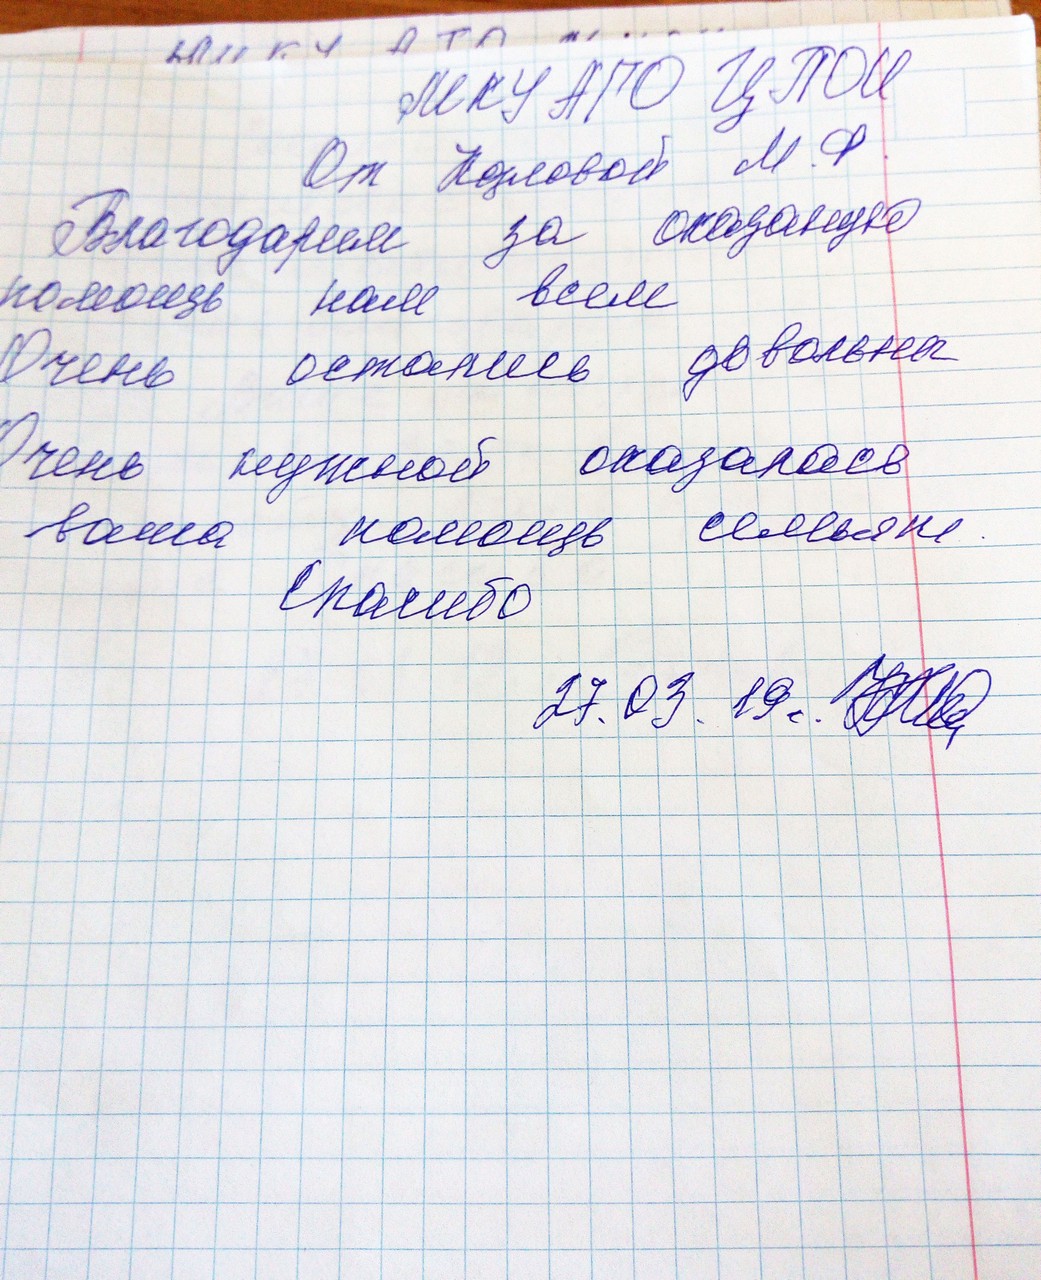 МКУ АГО ЦПОИ
От Козловой М.Ф.
Благодарим за оказаную
помощь нам всем
Очень остались довольны
Очень нужной оказалась
ваша помощь семьям.
Спасибо
27.03.19г.